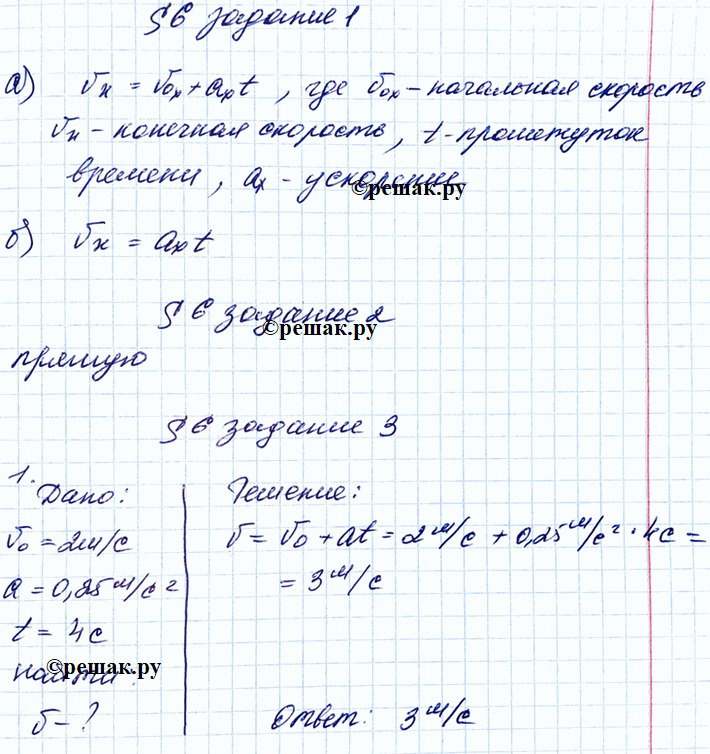 § 6 задание 1
а) υₓ = υ₀ₓ + aₓt, где υ₀ₓ – начальная скорость
υₓ – конечная скорость, t – промежуток
времени, aₓ – ускорение
©решак.ру
б) υₓ = aₓt
§ 6 задание 2
©решак.ру
прямую
§ 6 задание 3
1.
Дано:
υ₀ = 2м/с
a = 0,25 м/с²
t = 4с
найти:
©решак.ру
υ – ?
Решение:
υ = υ₀ + at = 2 м/с + 0,25 м/с² · 4с =
= 3 м/с
Ответ: 3 м/с